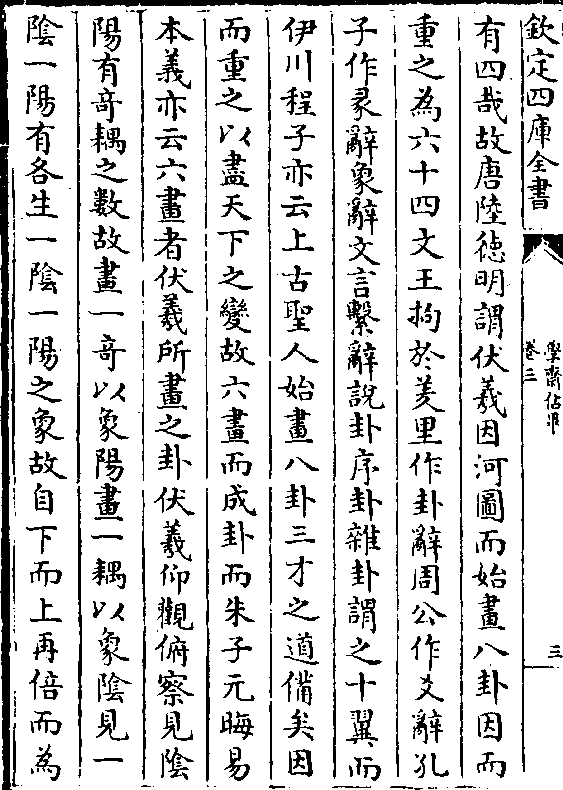 欽定四庫全書
學齋佔畢
卷三
三
有四哉故唐陸德明謂伏羲因河圖而始畫八卦因而
重之為六十四文王拘於羑里作卦辭周公作爻辭孔
子作彖辭象辭文言繫辭說卦序卦雜卦謂之十翼而
伊川程子亦云上古聖人始畫八卦三才之道備矣因
而重之以盡天下之變故六畫而成卦而朱子元晦易
本義亦云六畫者伏羲所畫之卦伏羲仰觀俯察見陰
陽有竒耦之數故畫一竒以象陽畫一耦以象陰見一
陰一陽有各生一陰一陽之象故自下而上再倍而為